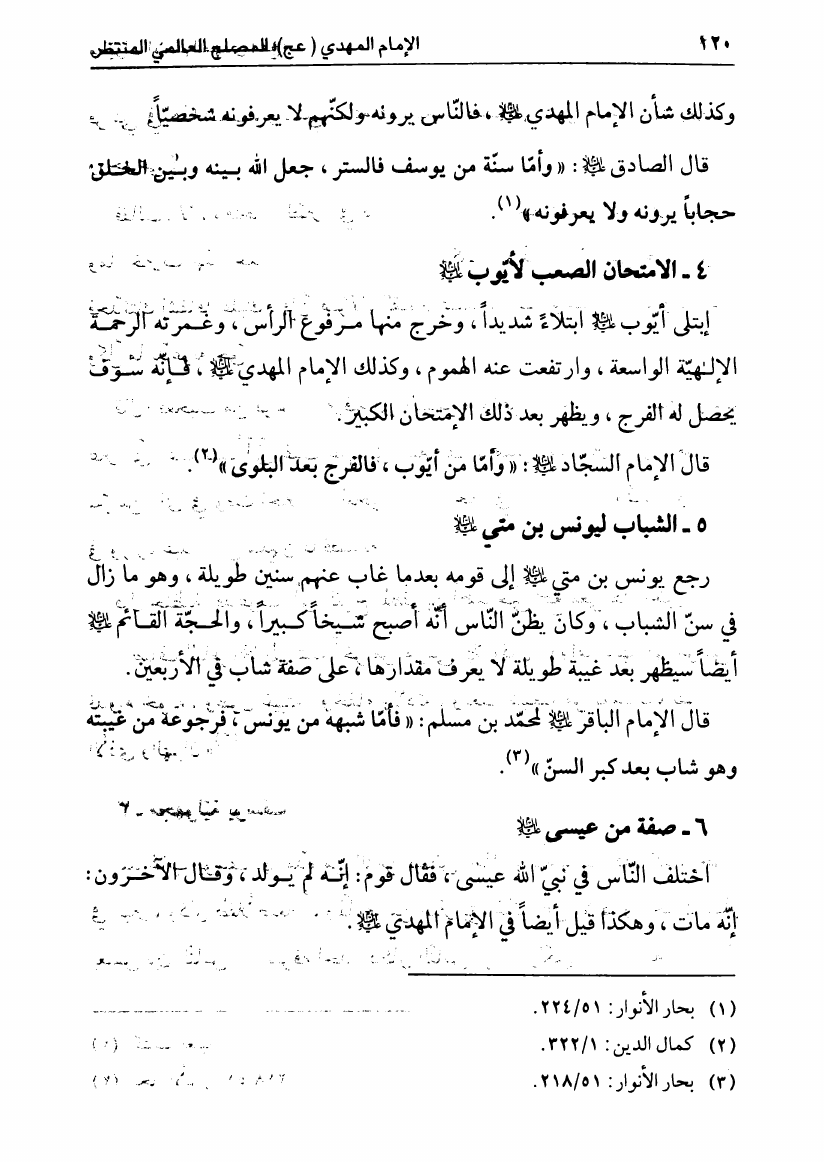 ١٢٠ الإمام المهدي (عج) المصلح العالمي المنتظر
وكذلك شأن الإمام المهدي ﵇ ، فالنّاس يرونه ولكنّهم لا يعرفونه شخصيّاً
قال الصادق ﵇ : « وأمّا سنّة من يوسف فالستر ، جعل الله بينه وبين الخلق
حجاباً يرونه ولا يعرفونه »(١).
٤ ـ الامتحان الصعب لأيّوب ﵇
إبتلى أيّوب ﵇ ابتلاءً شديداً ، وخرج منها مرفوع الرأس ، وغمرته الرحمة
الإلـٰهيّة الواسعة ، وارتفعت عنه الهموم ، وكذلك الإمام المهدي ﵇ ، فإنّه سوف
يحصل له الفرج ، ويظهر بعد ذلك الإمتحان الكبير .
قال الإمام السجّاد ﵇ : « وأمّا من أيّوب ، فالفرج بعد البلوى »(٢).
٥ ـ الشباب ليونس بن متي ﵇
رجع يونس بن متي ﵇ إلى قومه بعدما غاب عنهم سنين طويلة ، وهو ما زال
في سنّ الشباب ، وكان يظنّ النّاس أنّه أصبح شيخاً كبيراً ، والحجّة القائم ﵇
أيضاً سيظهر بعد غيبة طويلة لا يعرف مقدارها ، على صفة شاب في الأربعين .
قال الإمام الباقر ﵇ لمحمّد بن مسلم : « فأمّا شبهه من يونس ، فرجوعه من غيبته
وهو شاب بعد كبر السنّ »(٣).
٦ ـ صفة من عيسى ﵇
اختلف النّاس في نبيّ الله عيسى ، فقال قوم : إنّه لم يولد ، وقال الآخرون :
إنّه مات ، وهكذا قيل أيضاً في الإمام المهدي ﵇ .
(١) بحار الأنوار : ٢٢٤/٥١.
(٢) كمال الدين : ٣٢٢/١.
(٣) بحار الأنوار : ٢١٨/٥١.